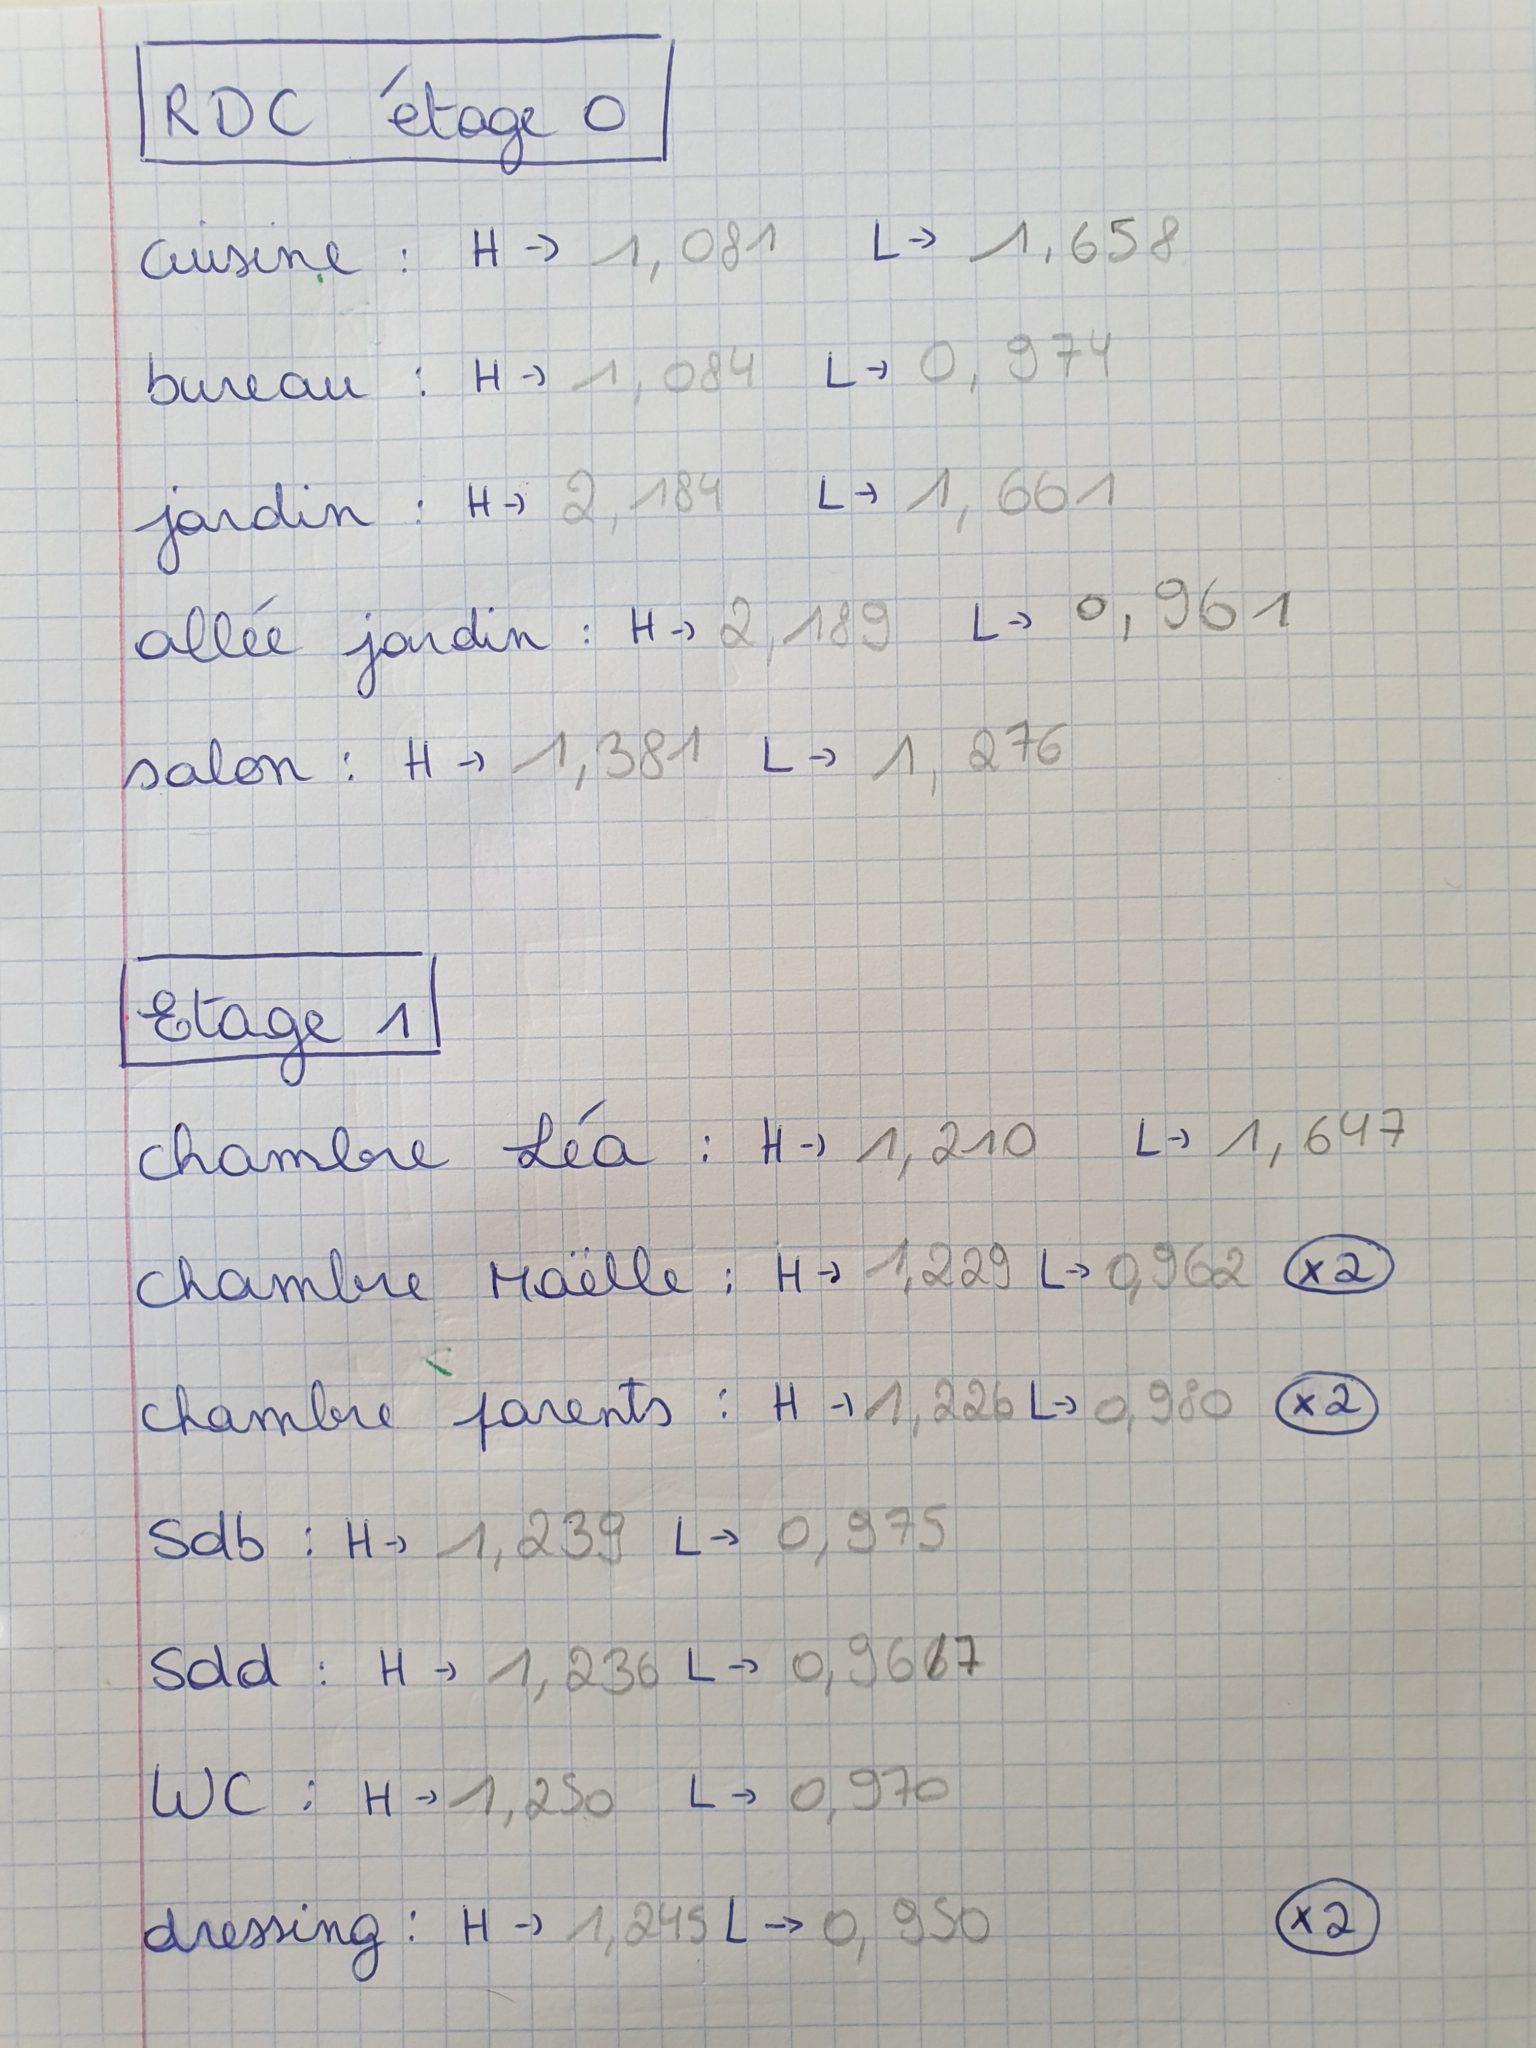 RDC étage 0
cuisine : H → 1,081 L → 1,658
bureau : H → 1,084 L → 0,974
jardin : H → 2,184 L → 1,661
allée jardin : H → 2,189 L → 0,961
salon : H → 1,381 L → 1,276
Etage 1
chambre Léa : H → 1,210 L → 1,647
chambre Maëlle : H → 1,229 L → 0,962 x2
chambre parents : H → 1,226 L → 0,980 x2
Sdb : H → 1,239 L → 0,975
Sdd : H → 1,236 L →
WC : H → 1,250 L → 0,970
dressing : H → 1,245 L → 0,950 x2